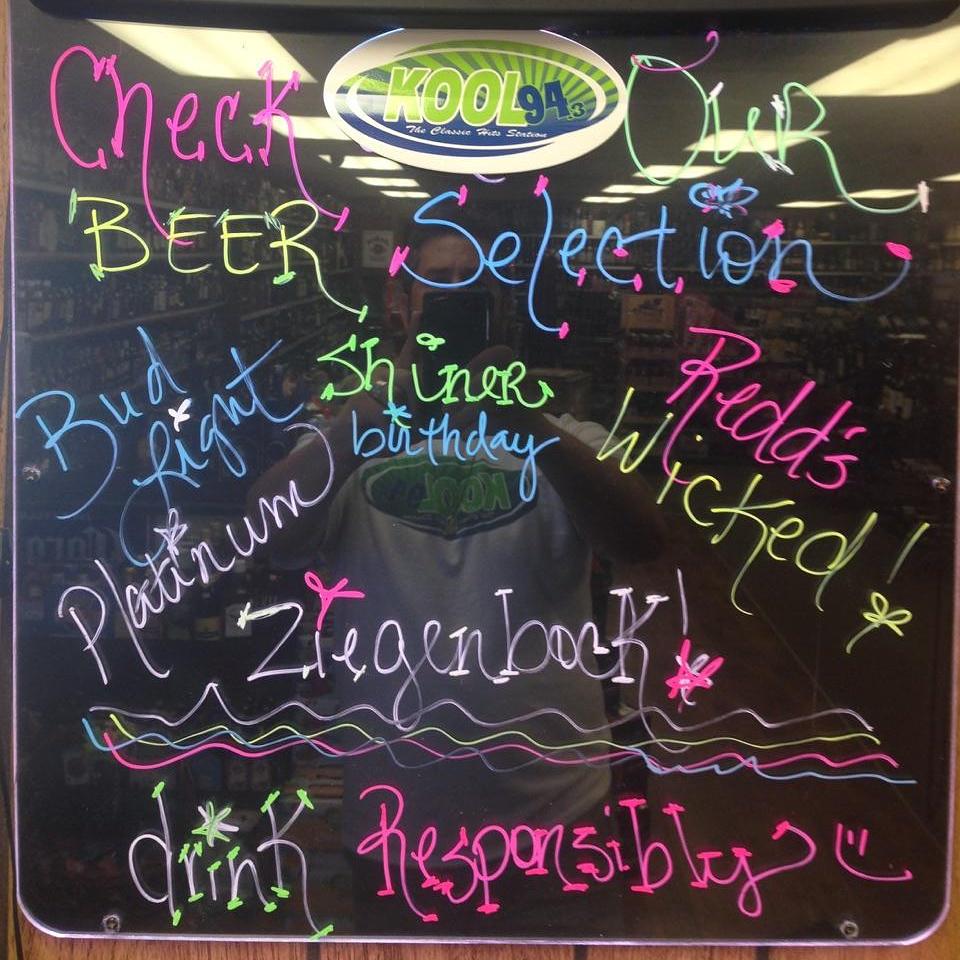 Check Our
KOOL 94.3
The Classic Hits Station
BEER Selection
Bud Light Platinum
Shiner birthday
Redd's Wicked!
Ziegenbock!
drink Responsibly